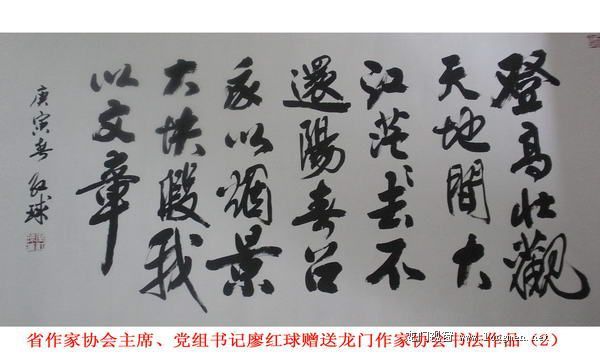 登高壯觀
天地間大
江茫々去不
還陽春召
我以烟景
大块假我
以文章
庚寅春 红球
省作家协会主席、党组书记廖红球赠送龙门作家协会书法作品（2）